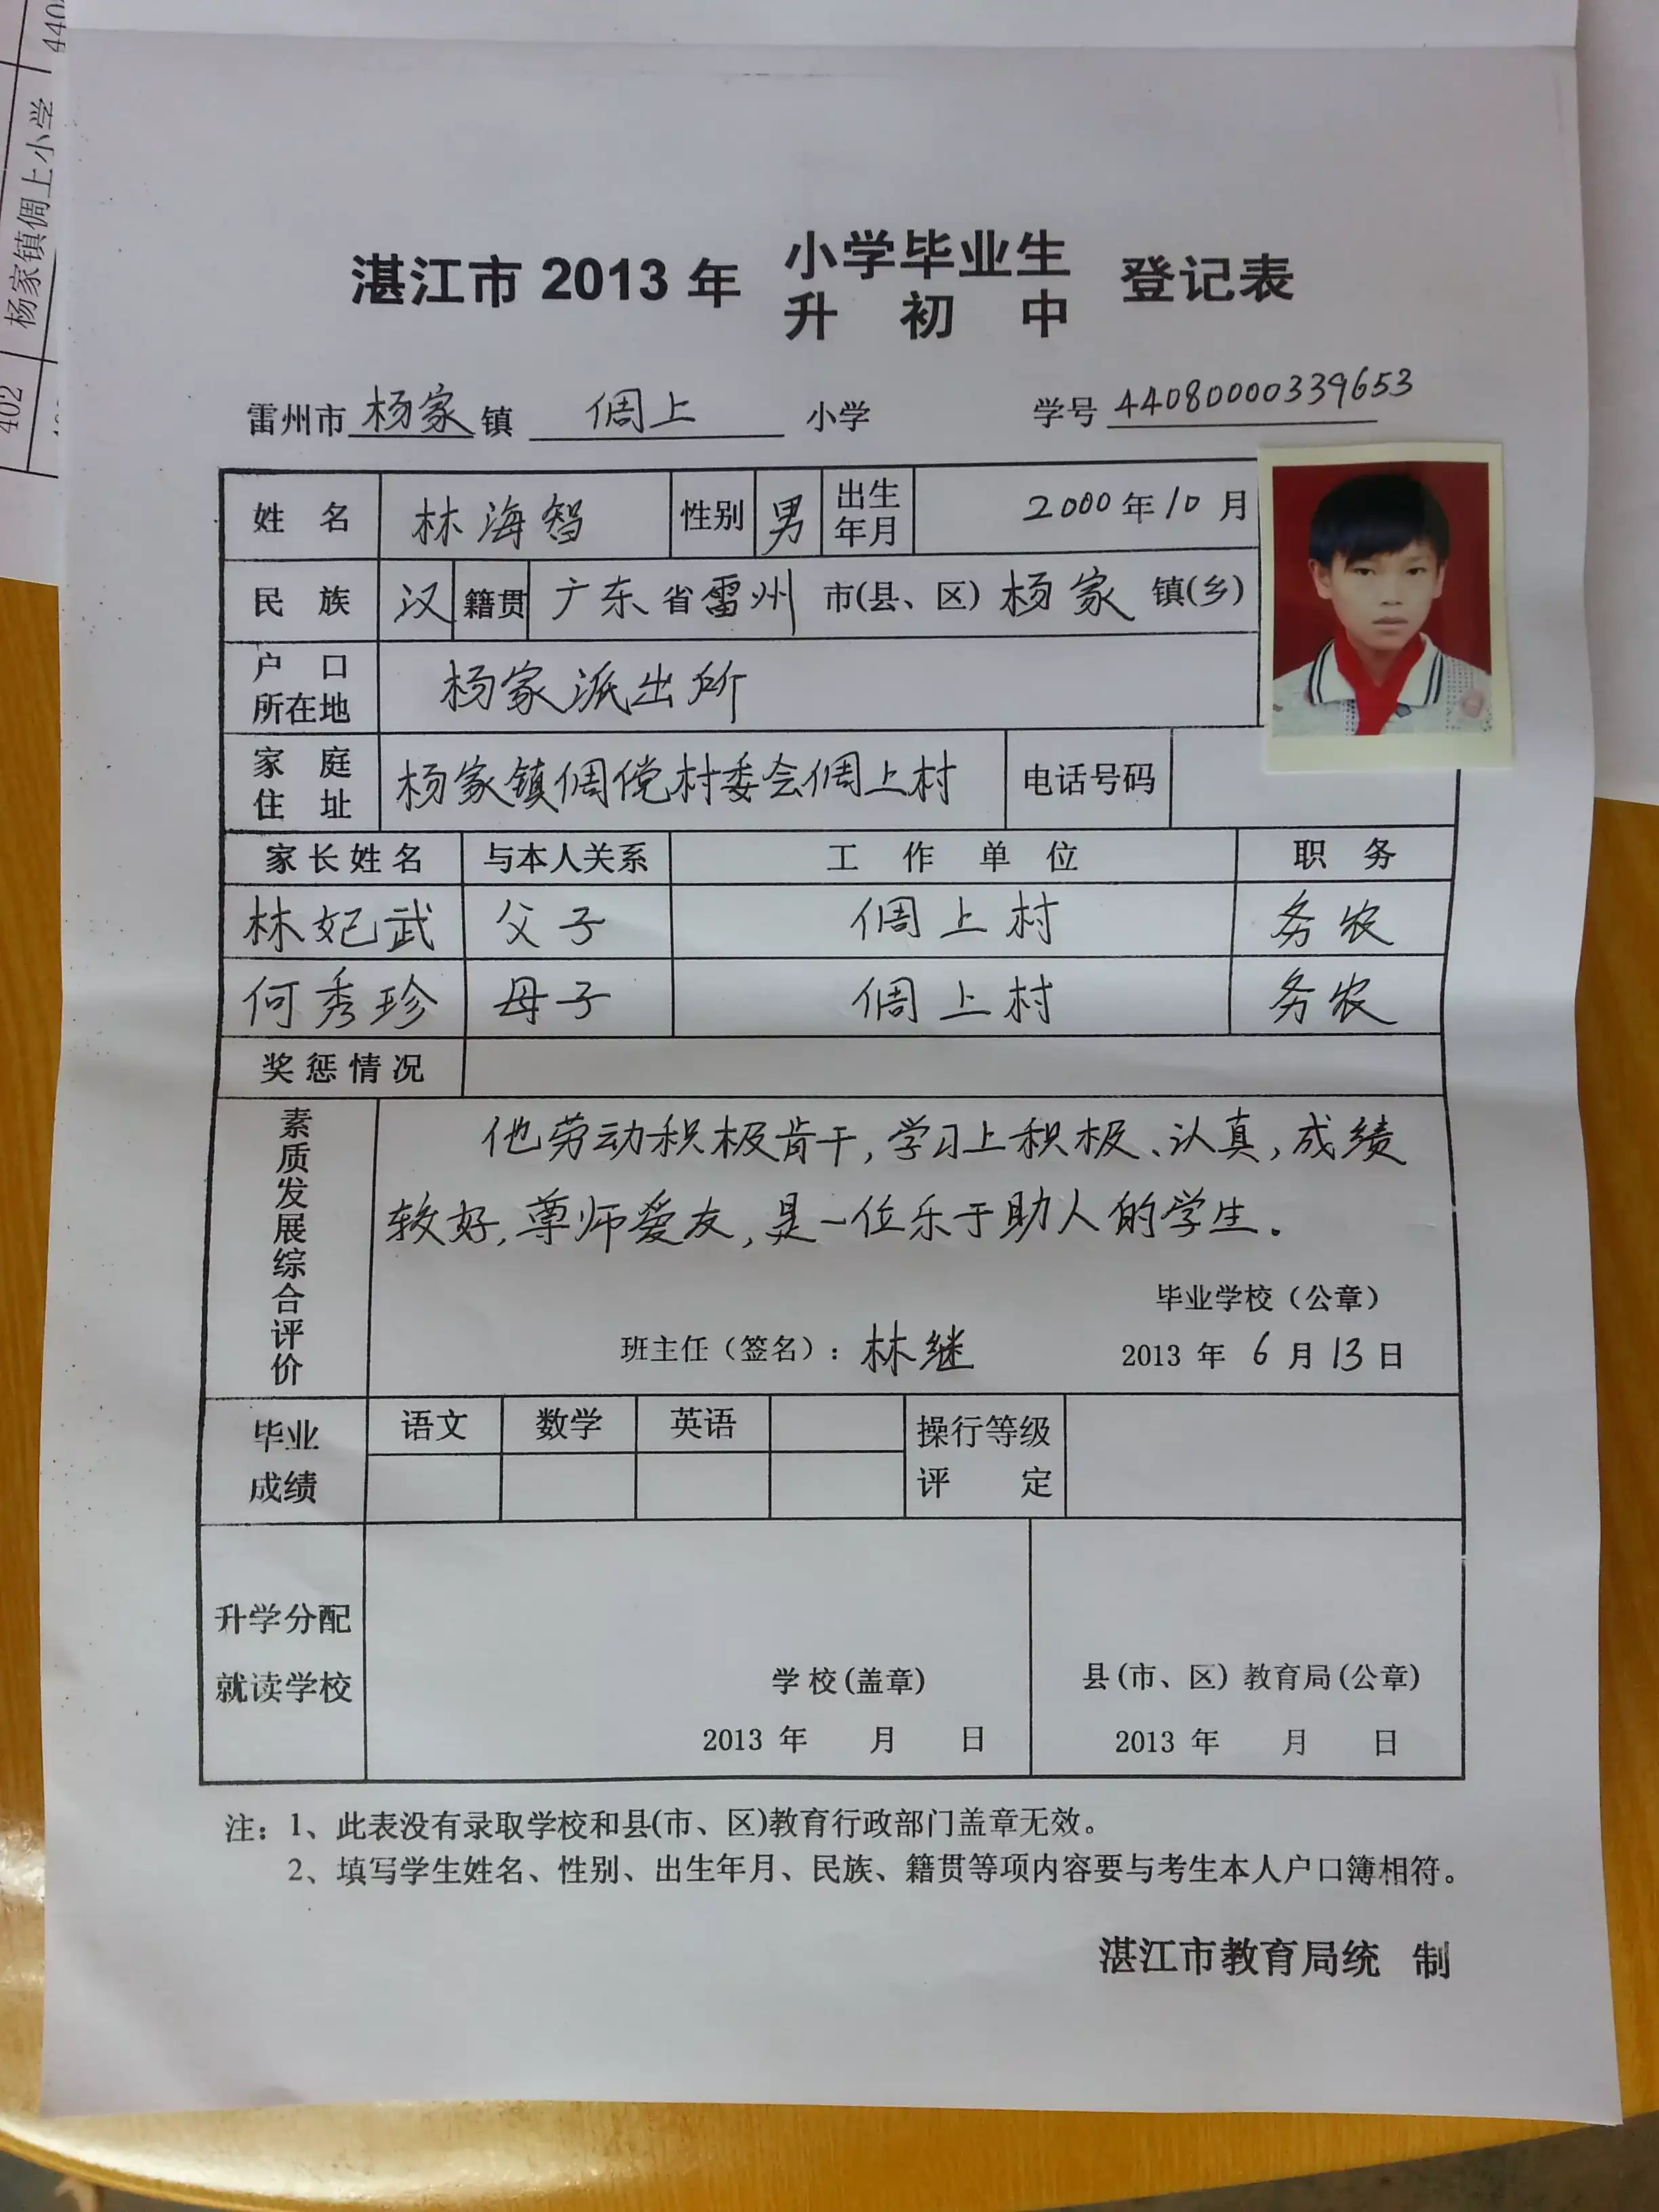 440
杨家镇倜上小学
402
湛江市 2013 年 小学毕业生 登记表
升 初 中
雷州市 杨家 镇 倜上 小学 学号 44080000339653
姓 名 林海智 性别 男 出生年月 2000年10月
民 族 汉 籍贯 广东省雷州 市(县、区) 杨家 镇(乡)
户 口
所在地 杨家派出所
家 庭
住 址 杨家镇倜傥村委会倜上村 电话号码
家长姓名 与本人关系 工 作 单 位 职 务
林妃武 父子 倜上村 务农
何秀珍 母子 倜上村 务农
奖惩情况
素质发展综合评价
他劳动积极肯干,学习上积极、认真,成绩
较好,尊师爱友,是一位乐于助人的学生.
毕业学校（公章）
班主任（签名）: 林继 2013 年 6 月 13 日
毕业
成绩
语文 数学 英语 操行等级
评 定
升学分配
就读学校
学校(盖章) 县(市、区) 教育局(公章)
2013 年 月 日 2013 年 月 日
注：1、此表没有录取学校和县(市、区)教育行政部门盖章无效。
2、填写学生姓名、性别、出生年月、民族、籍贯等项内容要与考生本人户口簿相符。
湛江市教育局统 制